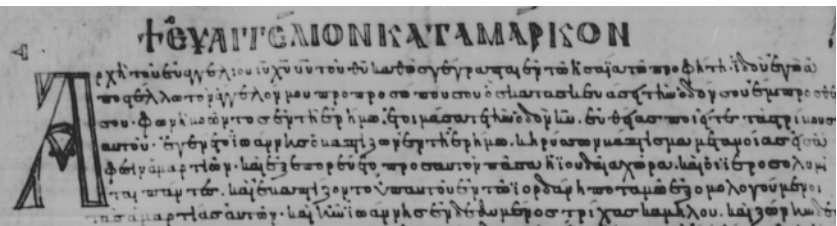 + ΕΥΑΓΓΕΛΙΟΝ ΚΑΤΑ ΜΑΡΚΟΝ
Αρχὴ τοῦ εὐαγγελίου ἰυ χυ υυ τοῦ θυ καθὼς γέγραπται ἐν τῶ ἠσαΐα τῶ προφήτη ἰδοὺ ἐγὼ ἀ
ποστέλλω τὸν ἄγγελόν μου πρὸ προσώπου σου ὃς κατασκευάσει τὴν ὁδόν σου ἔμπροσθέν
σου. φωνὴ βοῶντος ἐν τῆ ἐρήμω, ἑτοιμάσατε τὴν ὁδὸν κυ, εὐθείας ποιεῖτε τὰς τρίβους
αὐτοῦ. ἐγένετο ἰωάννης βαπτίζων ἐν τῆ ἐρήμω. καὶ κηρύσσων βάπτισμα μετανοίας εἰς ἄ
φεσιν ἁμαρτιῶν. καὶ ἐξεπορεύετο πρὸς αὐτὸν πᾶσα ἡ ἰουδαία χώρα. καὶ οἱ ἱεροσολυμῖ
ται πάντες. καὶ ἐβαπτίζοντο ὑπ αὐτοῦ ἐν τῶ ἰορδάνη ποταμῶ ἐξομολογούμενοι
τὰς ἁμαρτίας αὐτῶν. καὶ ἦν ὁ ἰωάννης ἐνδεδυμένος τρίχας καμήλου. καὶ ζώνην δερ